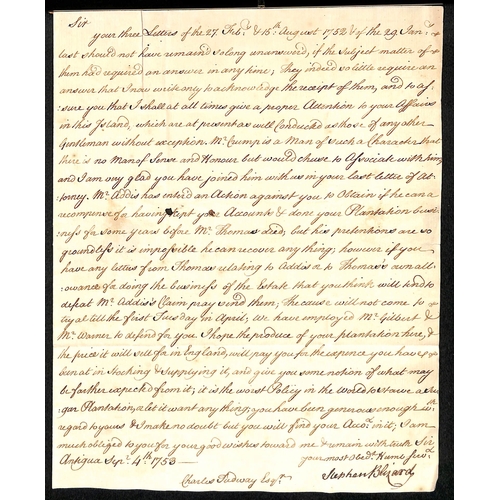 Sir
your three Letters of the 27. Feb.y & 15.th August 1752 & of the 29 Jan.y
last should not have remaind so long unanswer'd, if the subject matter of
them had required an answer in any time; They indeed so little require an
answer that I now write only to acknowledge the receipt of them, and to as-
sure you that I shall at all times give a proper Attention to your Affairs
in this Island, which are at present as well Conducted as those of any other
Gentleman without exception. Mr Crump is a Man of such a Character that
there is no Man of Sense and Honour but would chuse to Associate with him,
and I am very glad you have joined him with us in your last letter of At-
torney. Mr Addis has enterd an Action against you to Obtain if he can a
recompense for having kept your Accounts & done your Plantation busi-
ness for some years before Mr Thomas died, but his pretentions are so
groundless it is impossible he can recover any thing; however if you
have any letters from Thomas relating to Addis or to Thomas's own all-
owance for doing the business of the Estate that you think will tend to
defeat Mr Addis's Claim pray send them; The cause will not come to
tryal till the first Tuesday in April; We have employed Mr Gilbert &
Mr Warner to defend for you. I hope the produce of your plantation here, &
the price it will sell for in England, will pay you for the expence you have
been at in Stocking & Supplying it, and give you some notion of what may
be farther expected from it; it is the worst Policy in the World to starve a Su-
gar Plantation, or let it want any thing; you have been generous enough with
regard to yours & I make no doubt but you will find your Acco.t in it; I am
much obliged to you for your good wishes toward me & remain with truth Sir
Antigua Sep.r 4.th 1753 your most Obed.t Humb serv.t
Charles Tudway Esq.r Stephen Blizard